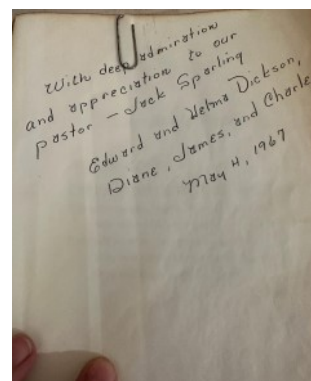 With deep admiration
and appreciation to our
pastor - Jack Sparling
Edward and Velma Dickson,
Diane, James, and Charle
May 4, 1967